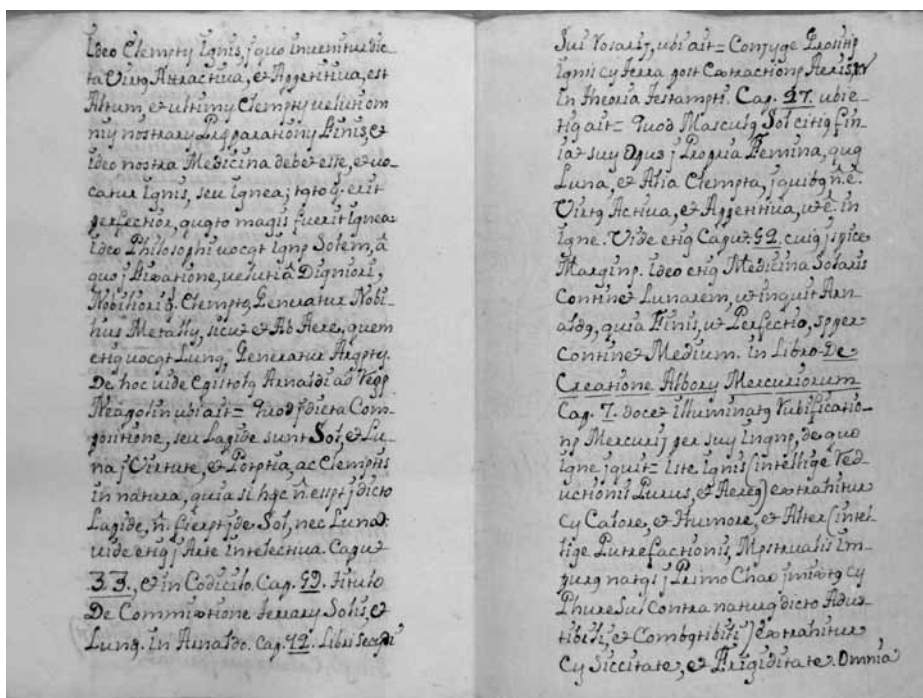 Ideo Elempty Ignis, j quo invenitur dic-
ta Virtq Attractiua, et Appetitiua, est
Altum et ultimy Elempty uelut om
niy nostrary Prpparationy Finis, et
ideo nostra Medicina debet esse, et uo-
catur Ignis, seu Ignea; tqto q. erit
perfectior, quqto magis fuerit Ignea.
Ideo Philosophi uocqt Ignp Solem, à
quo j Fixatione, uelut à Digniori,
Nobiliori q. Elempto, Generatur Nobi-
lius Metally, sicut et Ab Aere, quem
etiq uocqt Lunq, Generatur Argpty.
De hoc uide Epistolq Arnaldi ad Regp
Neapolin ubi ait = Quod j dicta Com-
positione, seu Lapide sunt Sol, et Lu-
na j Virtute, et Potptia, ac Elemptis
in natura, quia si hqc ñ. esspt j dicto
Lapide, ñ. fierpt jde Sol, nec Luna.
uide etiq j Arte Intelectiua. Caput
33., et in Codicilo. Cap. 59. titulo
De Commixtione terrary Solis, et
Lunq. In Arnaldo. Cap. 12. Libri Secqdi
Sui Rosarij, ubi ait = Conjuge
Ignis cy terra post Extractionp Aeris,
in theoria testampti. Cap. 27. ubi e-
tiq ait = Quod Masculq Sol citiq fin-
iat suy Opus j Propria Femina, quq
Luna, et Alia Elempta, j quibq ñ. ê.
Virtq Actiua, et Appetitiua, ut ê. in
Igne. Vide etiq Caput 52. cuiq jspice
Marginp. Ideo etiq Medicina Solaris
Continet Lunarem, ut inquit Arn-
aldq, quia Finis, ut Perfectio, spper
Continet Medium. in Libro De
Creatione Albory Mercuriorum
Cap. 7. docet illuminatq Rubificatio-
np Mercurij per suy Ingnp, de quo
igne jquit = Iste Ignis (intellige Red-
uctionis Purus, et Aereq) extrahitur
cy Calore, et Humore, et Alter (intel-
lige Putrefactionis, Mpstrualis Im-
purq natqs j Primo Chao jmixtq cy
Phure sui contra naturq dicto Adus-
tibili, et Combqtibili) extrahitur
cy Siccitate, et Frigiditate. Omnia